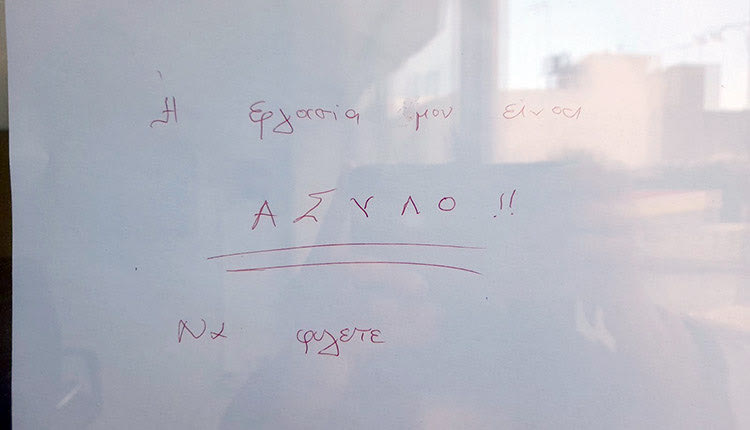 Η εργασία μου είναι
ΑΣΥΛΟ !!
Να φυγετε